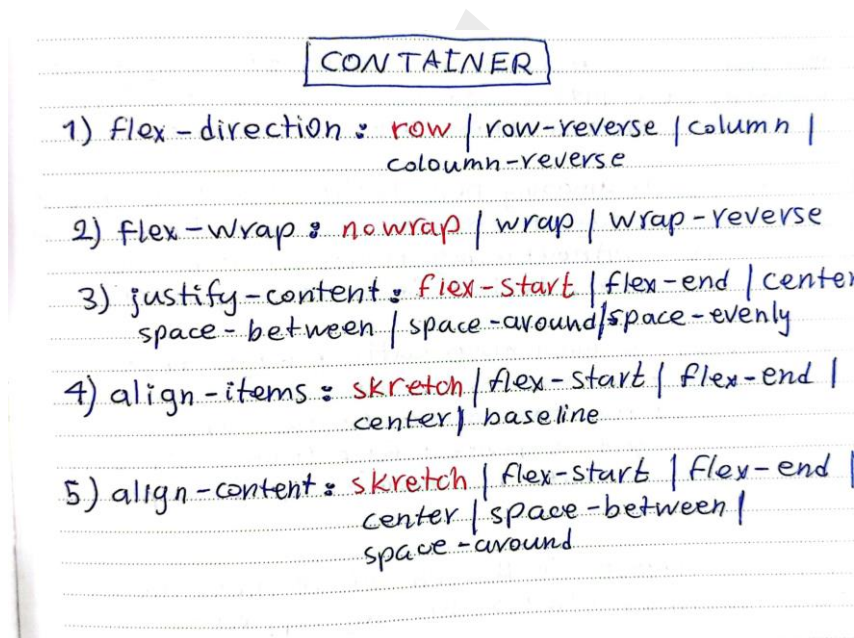 CONTAINER
1) flex-direction: row | row-reverse | column |
coloumn-reverse
2) flex-wrap: nowrap | wrap | wrap-reverse
3) justify-content: flex-start | flex-end | center
space-between | space-around | space-evenly
4) align-items: skretch | flex-start | flex-end |
center | baseline
5) align-content: skretch | flex-start | flex-end |
center | space-between |
space-around